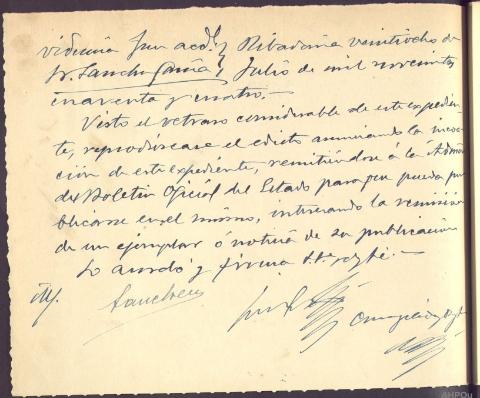 videncia Juez acctl } Ribadavia veintiocho de
Sr. Sancho García } Julio de mil novecientos
cuarenta y cuatro.-
Visto el retraso considerable de este expedien-
te, reprodúzcase el edicto anunciando la incoa-
ción de este expediente, remitiéndose á la Admón
del Boletin Oficial del Estado para que pueda pu-
blicarse en el mismo, interesando la remisión
de un ejemplar ó noticia de su publicación
Lo acordó y firma S.Sª doy fé.-
M/.